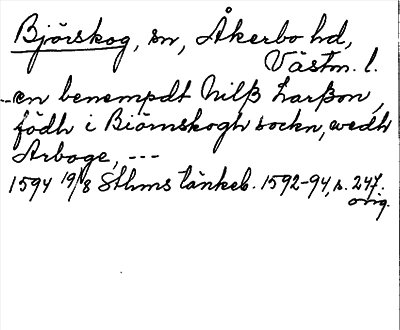 Björskog, sn, Åkerbo hd,
Västm. l.
--en benempdt Nilß Larßon,
födh i Biörnskogh sockn, wedh
Arboge, ---
1594 19/8 Sthms tänkeb. 1592-94, s. 247.
orig.